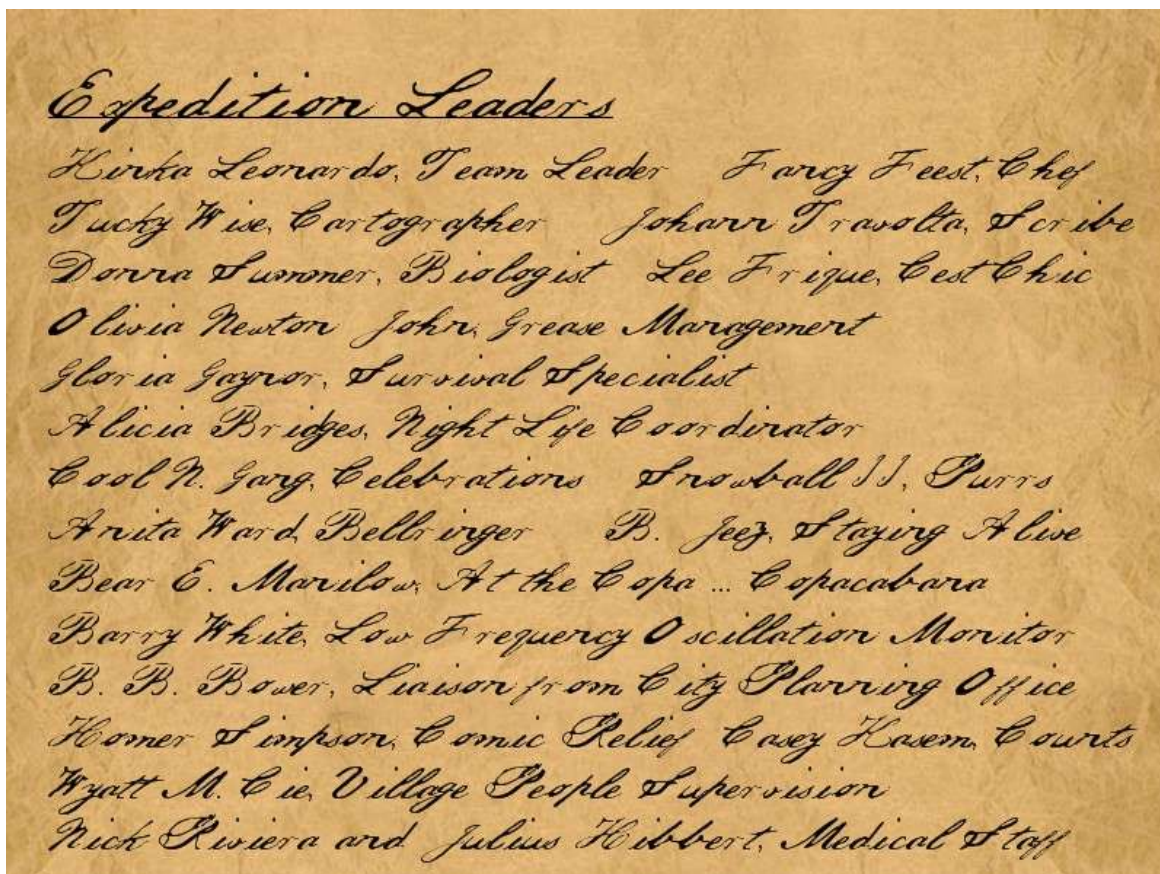 Expedition Leaders
Kinka Leonardo, Team Leader Fancy Feest, Chef
Tucky Wise, Cartographer Johann Travolta, Scribe
Donna Summer, Biologist Lee Frique, Cest Chic
Olivia Newton John, Grease Management
Gloria Gaynor, Survival Specialist
Alicia Bridges, Night Life Coordinator
Cool N. Gang, Celebrations Snowball II, Purrs
Anita Ward, Bellringer B. Jeez, Staying Alive
Bear E. Manilow, At the Copa ... Copacabana
Barry White, Low Frequency Oscillation Monitor
B. B. Bower, Liaison from City Planning Office
Homer Simpson, Comic Relief Casey Kasem, Counts
Wyatt M. Cie, Village People Supervision
Nick Riviera and Julius Hibbert, Medical Staff